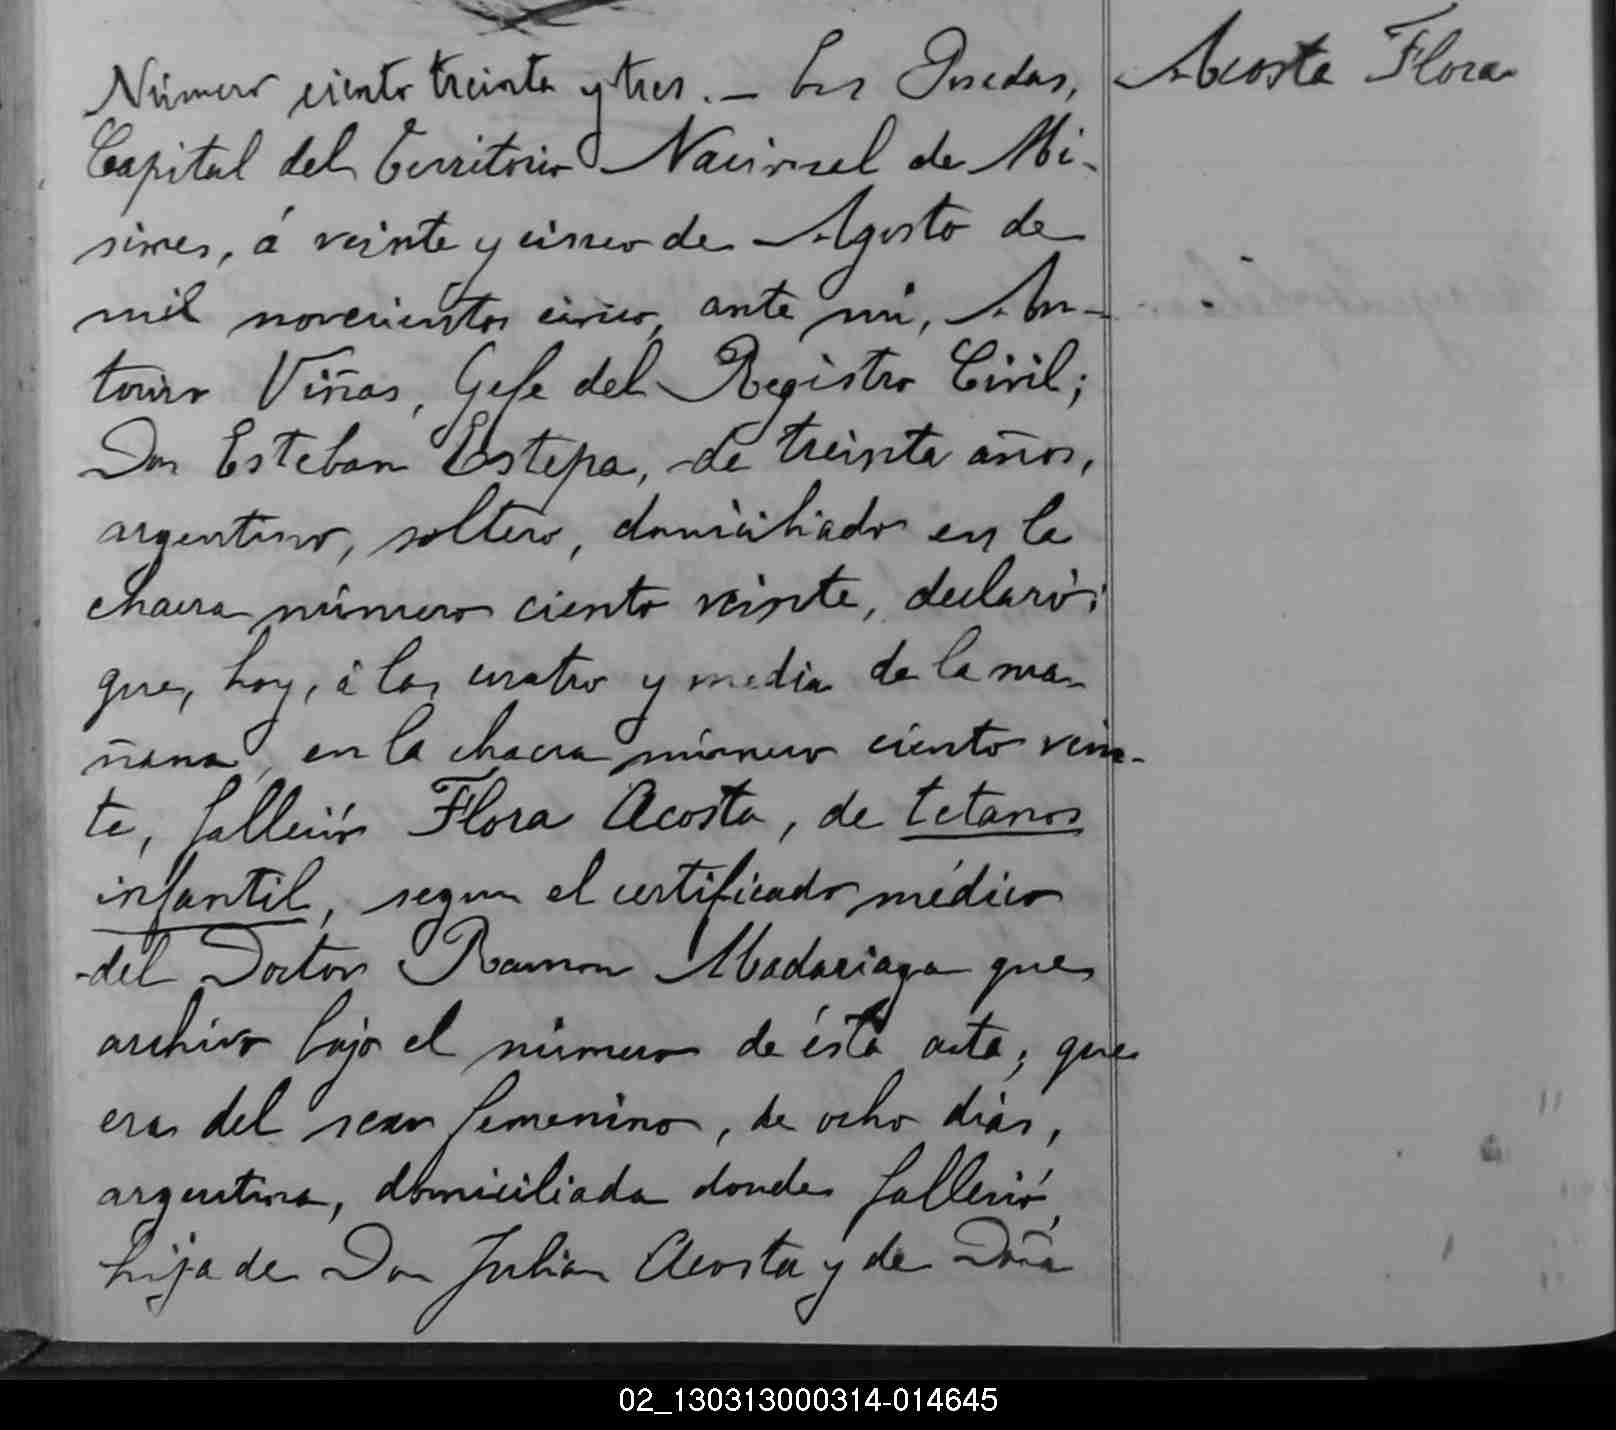 Número ciento treinta y tres. — En Posadas,
Capital del Territorio Nacional de Mi-
siones, á veinte y cinco de Agosto de
mil novecientos cinco, ante mi, An-
tonio Viñas, Gefe del Registro Civil;
Don Esteban Estepa, de treinta años,
argentino, soltero, domiciliado en la
chacra número ciento veinte, declaró:
que, hoy, á las cuatro y media de la ma-
ñana, en la chacra número ciento vein-
te, falleció Flora Acosta, de tetanos
infantil, segun el certificado médico
del Doctor Ramon Madariaga que
archivo bajo el número de ésta acta; que
era del sexo femenino, de ocho dias,
argentina, domiciliada donde falleció,
hija de Don Julian Acosta y de Doña
Acosta Flora
02_130313000314-014645